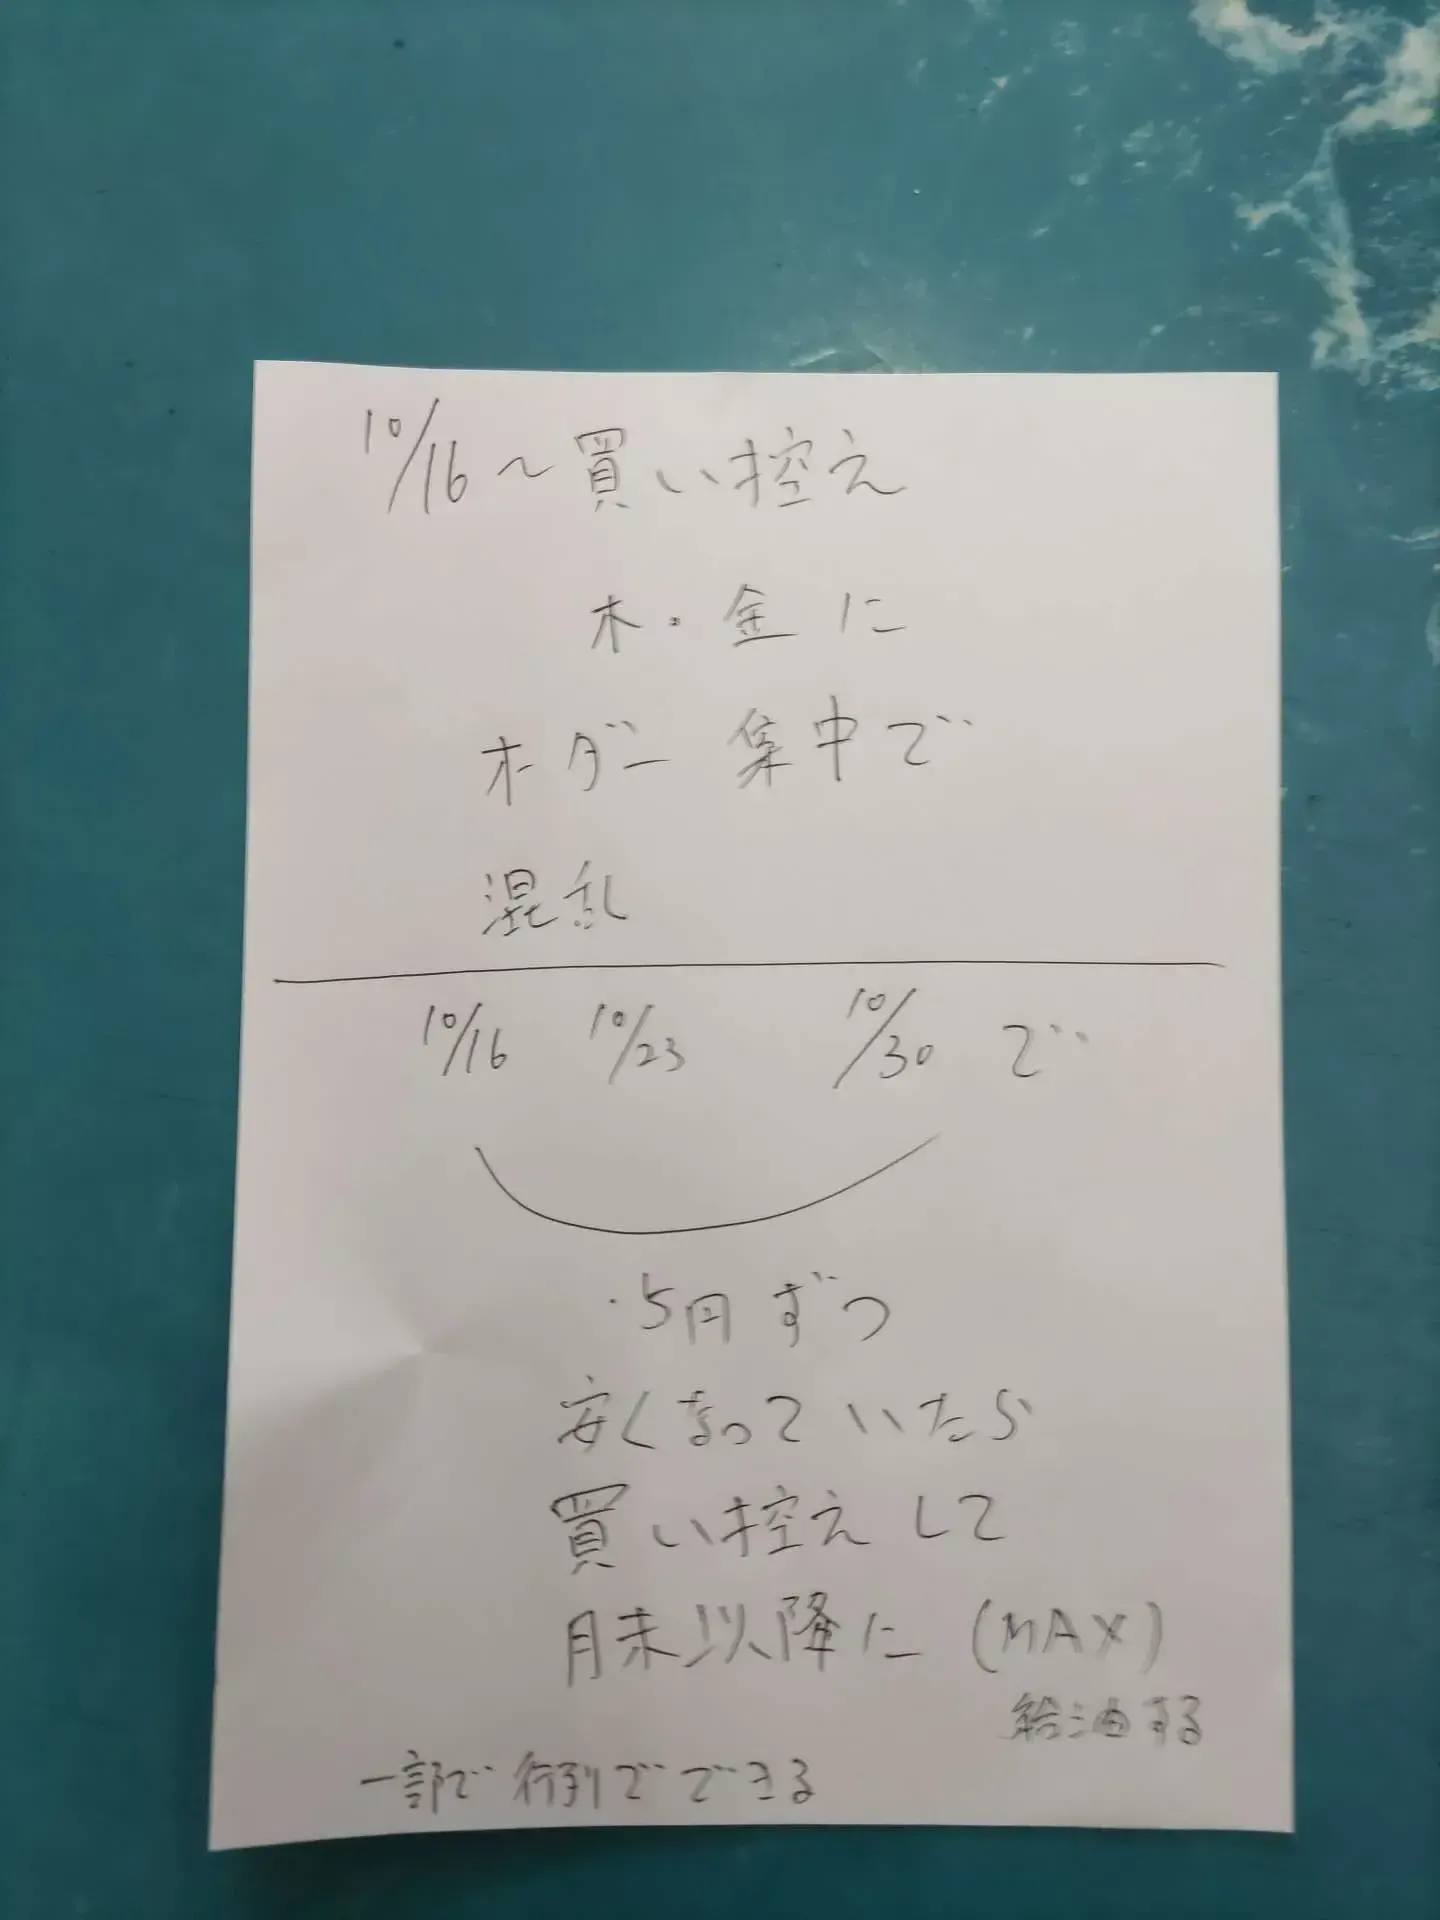 10/16～買い控え
木・金に
オーダー集中で
混乱
10/16 10/23 10/30 で
・5円ずつ
安くなっていたら
買い控えして
月末以降に (MAX)
給油する
一部で行列でできる